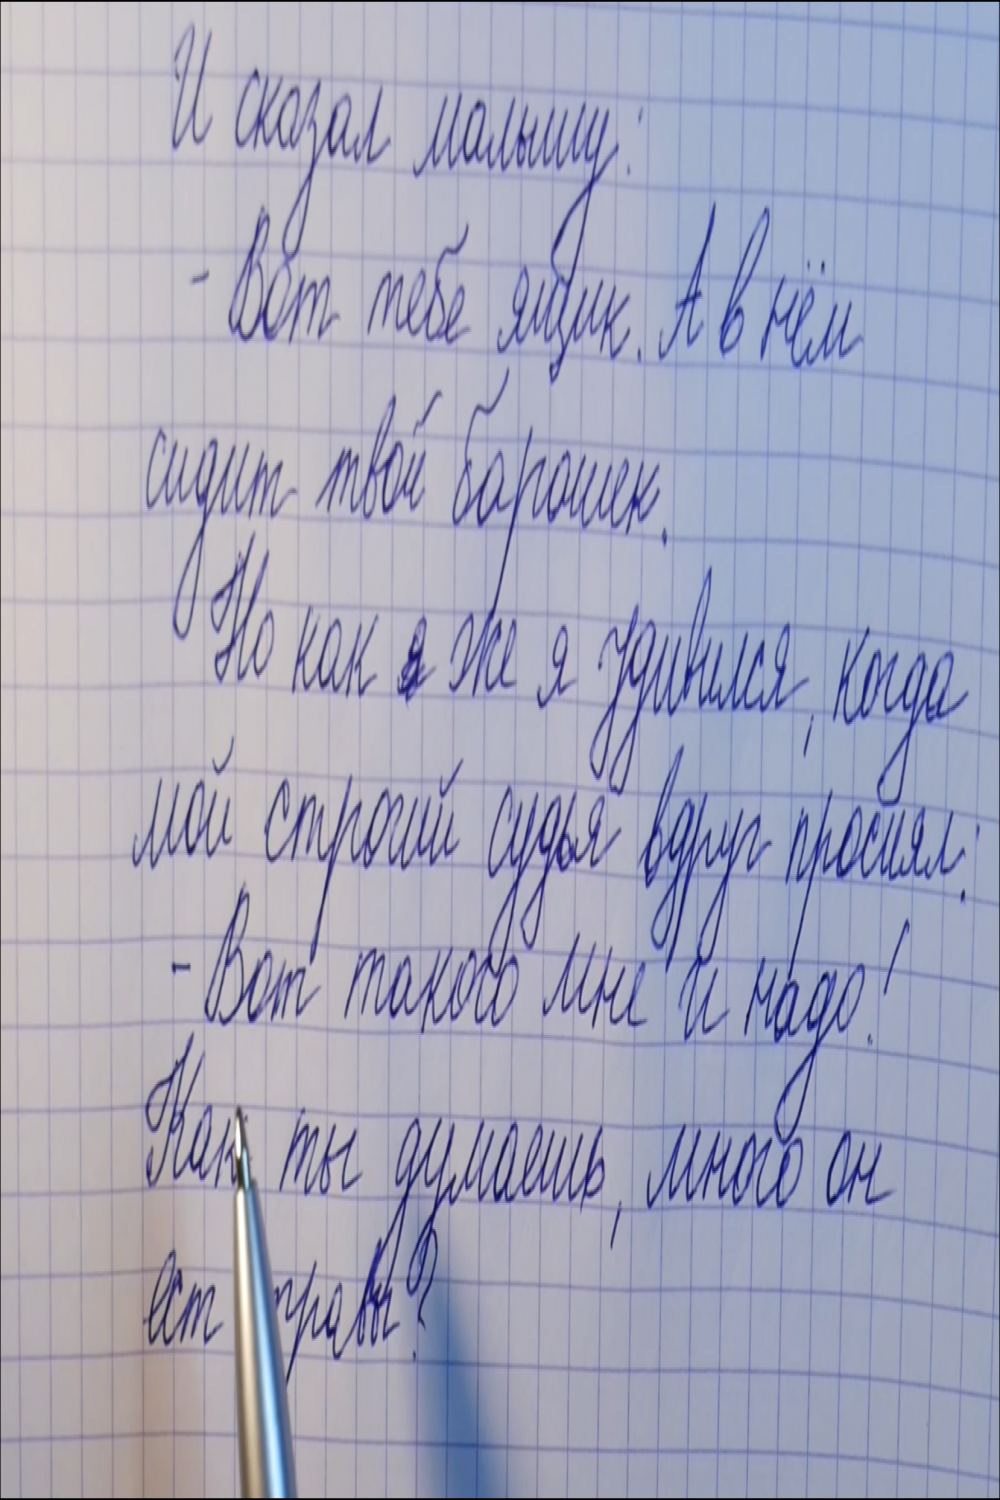 И сказал малышу:
- Вот тебе ящик. А в нём
сидит твой барашек.
Но как же я удивился, когда
мой строгий судья вдруг просиял:
- Вот такого мне и надо!
Как ты думаешь, много он
ест травы?